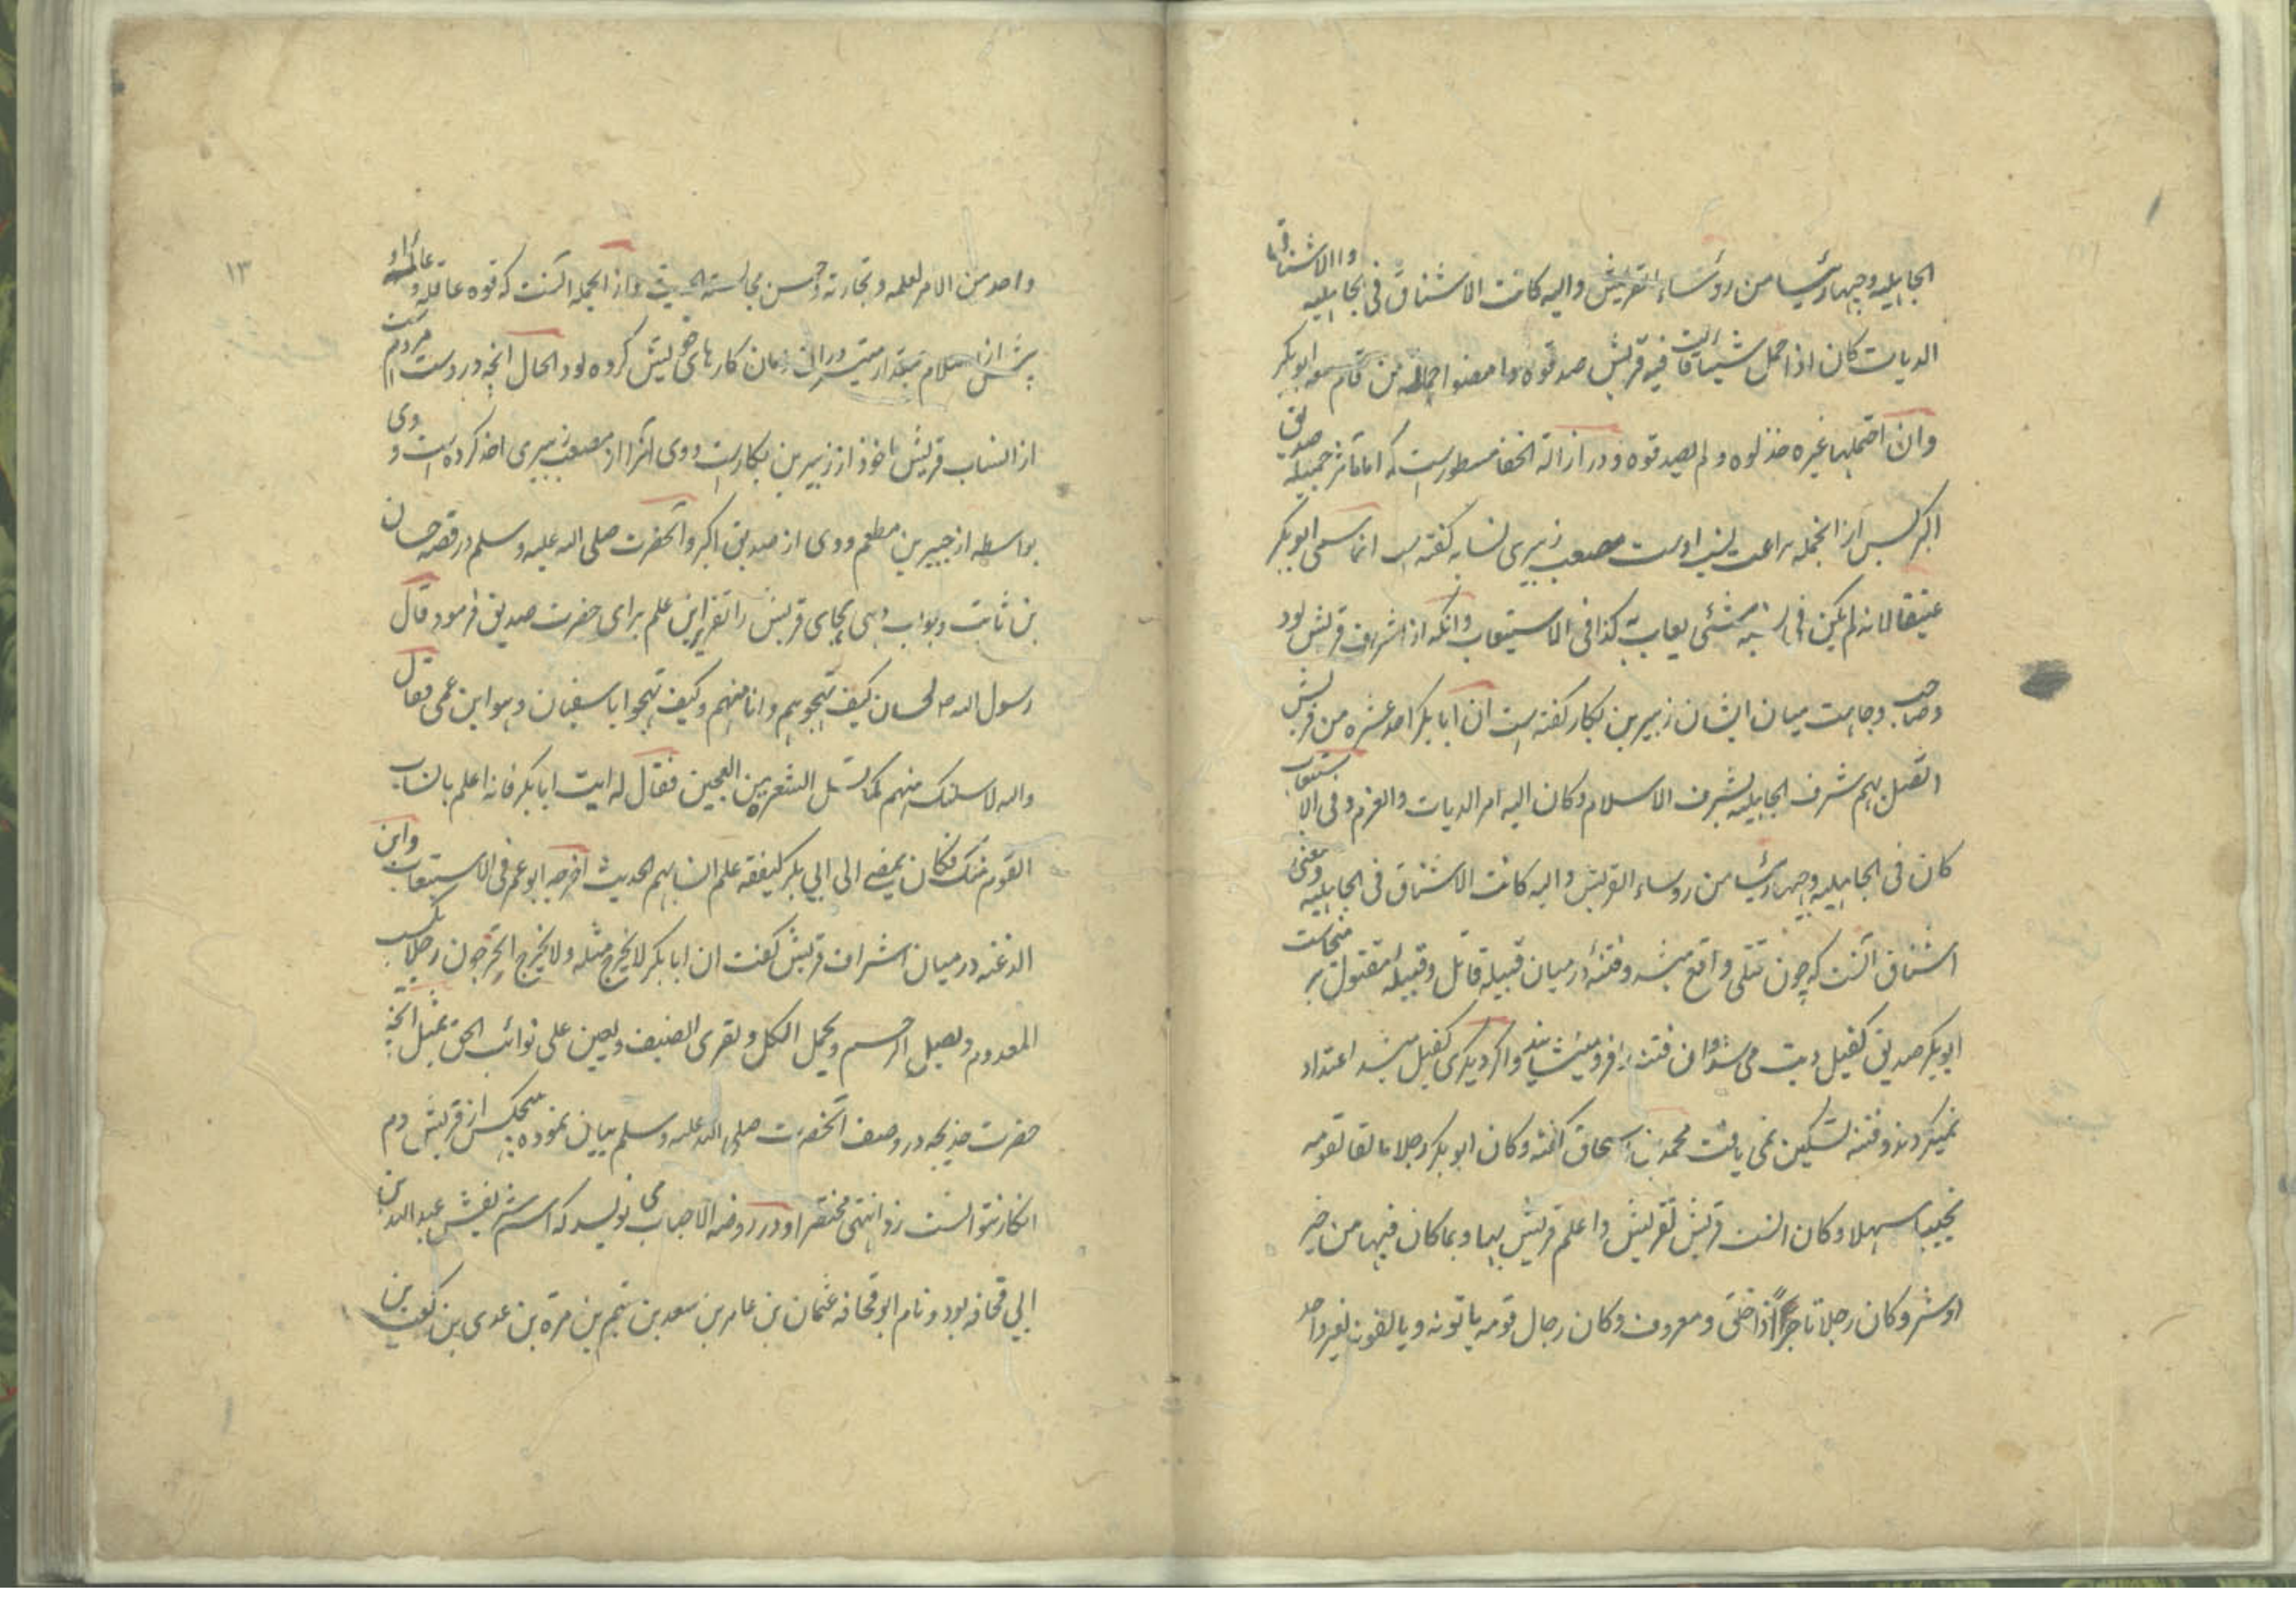 الجاهلیه وجیها رئیسا من روساء القریش والیه کانت الاشناق فی الجاهلیه والاشناق
الدیات کان اذا حمل شیئا قالت فیه قریش صدقوه وامضوا حمالة من قام معه ابوبکر
وان احتملها غیره خذلوه ولم یصدقوه ودر ازالة الخفا مسطور است که اما مآثر جمیله صدیق
اکبر پس از انجمله براعت نسب اوست مصعب زبیری نسابه گفته است انما سمی ابوبکر
عتیقا لانه لم یکن فی نسبه شئی یعاب به کذا فی الاستیعاب وانکه از اشراف قریش بود
وصاحب وجاهت میان ایشان زبیر بن بکار گفته است ان ابابکر احد عشره من قریش
اتصل بهم شرف الجاهلیه بشرف الاسلام وکان الیه امر الدیات والغرم وفی الاستیعاب
کان فی الجاهلیه وجیها رئیسا من روساء القریش والیه کانت الاشناق فی الجاهلیه ومعنی
اشناق آنست که چون قتلی واقع میشد وفتنه درمیان قبیله قاتل وقبیله مقتول بر میخاست
ابوبکر صدیق کفیل دیت می شد وان فتنه را فرو مینشانید واگر دیگری کفیل میشد اعتداد
نمیکردند وفتنه تسکین نمی یافت محمد بن اسحاق گفته وکان ابوبکر رجلا مالفا لقومه
محببا سهلا وکان انسب قریش لقریش واعلم قریش بها وبما کان فیها من خیر
او شر وکان رجلا تاجرا ذا خلق ومعروف وکان رجال قومه یاتونه ویالفونه لغیر واحد
۱۳
واحد من الامر لعلمه وتجارته وحسن مجالسته الحدیث واز انجمله آنست که قوه عاقله وعامله او
پیش از اسلام بقدار متیسر دران زمان کارهای خویش کرده بود الحال انچه در دست مردم است
از انساب قریش ماخوذ از زبیر بن بکار است ووی آنرا از مصعب زبیری اخذ کرده است و وی
بواسطه از جبیر بن مطعم ووی از صدیق اکبر وآنحضرت صلی الله علیه وسلم در قصه حسان
بن ثابت وجواب وی هجای قریش را تقریر این علم برای حضرت صدیق فرمود قال
رسول الله ص لحسان کیف تهجوهم وانا منهم وکیف تهجوا اباسفیان وهو ابن عمی فقال
والله لاسلنک منهم کما تسل الشعره من العجین فقال له ایت ابابکر فانه اعلم بانساب
القوم منک فکان یمضی الی ابی بکر لیفقه علم انسابهم الحدیث اخرجه ابوعمر فی الاستیعاب وابن
الدغنه درمیان اشراف قریش گفت ان ابابکر لا یخرج مثله ولا یخرج اتخرجون رجلا یکسب
المعدوم ویصل الرحم ویحمل الکل ویقری الضیف ویعین علی نوائب الحق بمثل انچه
حضرت خدیجه در وصف آنحضرت صلی الله علیه وسلم بیان نموده هیچکس از قریش دم
انکار نتوانست زد انتهی مختصرا ودر روضه الاحباب می نویسد که اسم شریفش عبد الله بن
ابی قحافه بود ونام ابو قحافه عثمان بن عامر بن سعد بن تیم بن مرة بن عدی بن کعب بن